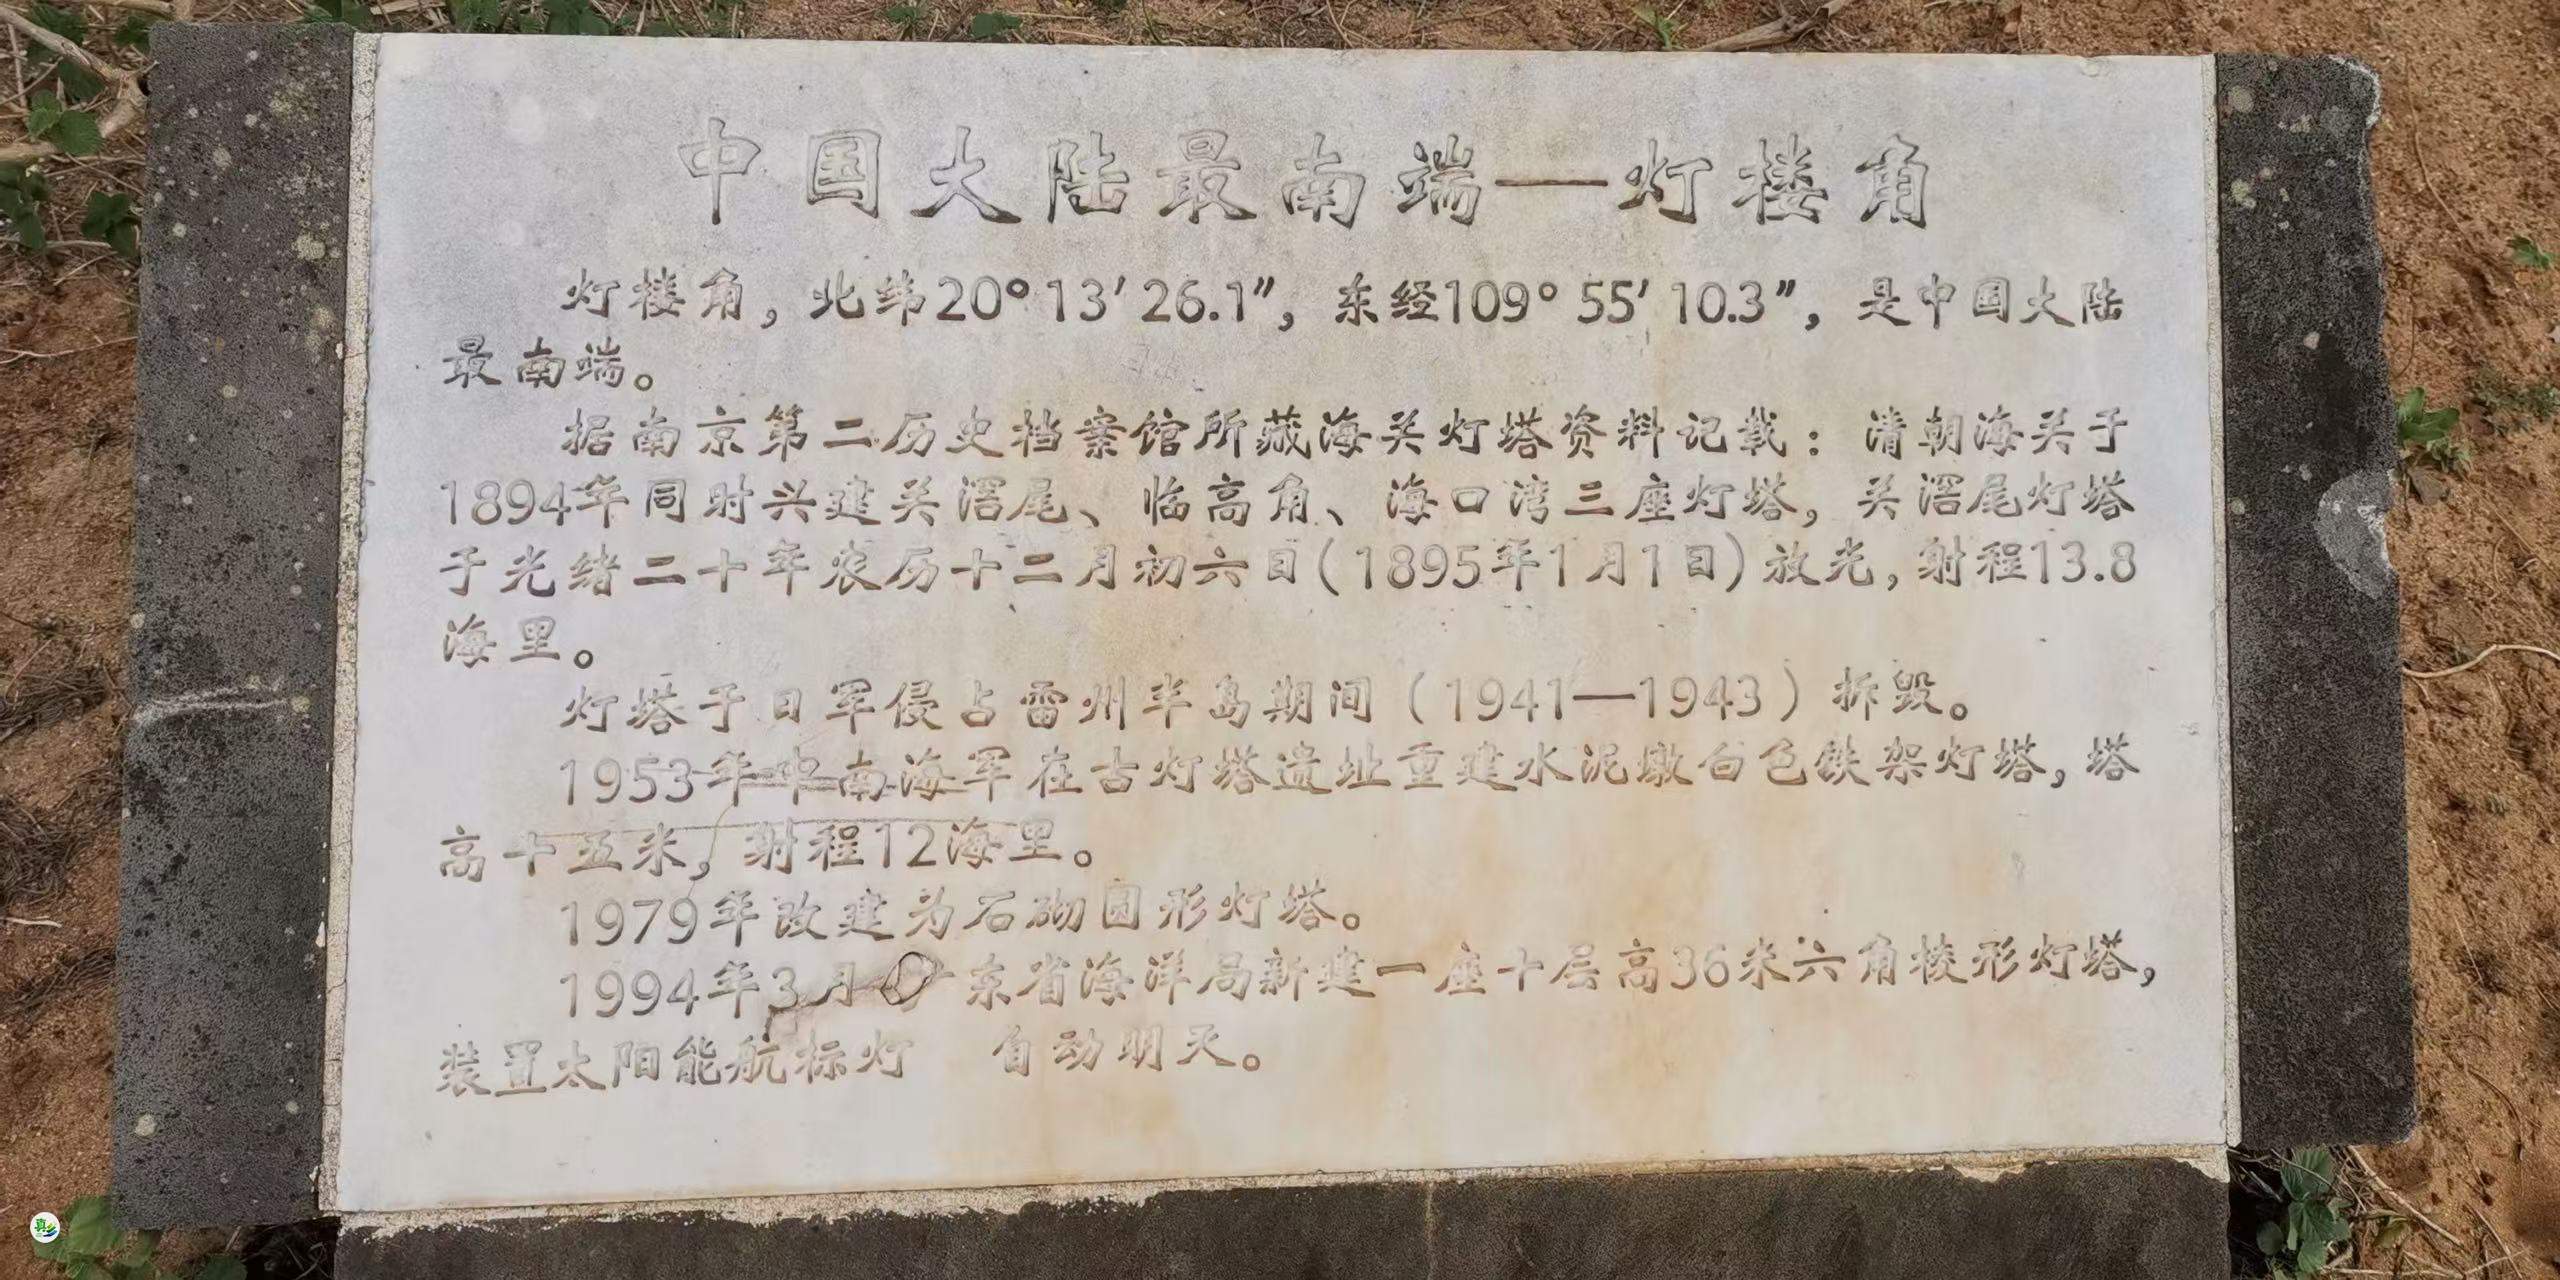 中国大陆最南端—灯楼角
灯楼角，北纬20°13′26.1″，东经109°55′10.3″，是中国大陆
最南端。
据南京第二历史档案馆所藏海关灯塔资料记载：清朝海关于
1894年同时兴建关滘尾、临高角、海口湾三座灯塔，关滘尾灯塔
于光绪二十年农历十二月初六日（1895年1月1日）放光，射程13.8
海里。
灯塔于日军侵占雷州半岛期间（1941—1943）拆毁。
1953年中南海军在古灯塔遗址重建水泥墩白色铁架灯塔，塔
高十五米，射程12海里。
1979年改建为石砌圆形灯塔。
1994年3月广东省海洋局新建一座十层高36米六角棱形灯塔，
装置太阳能航标灯 自动明灭。
真